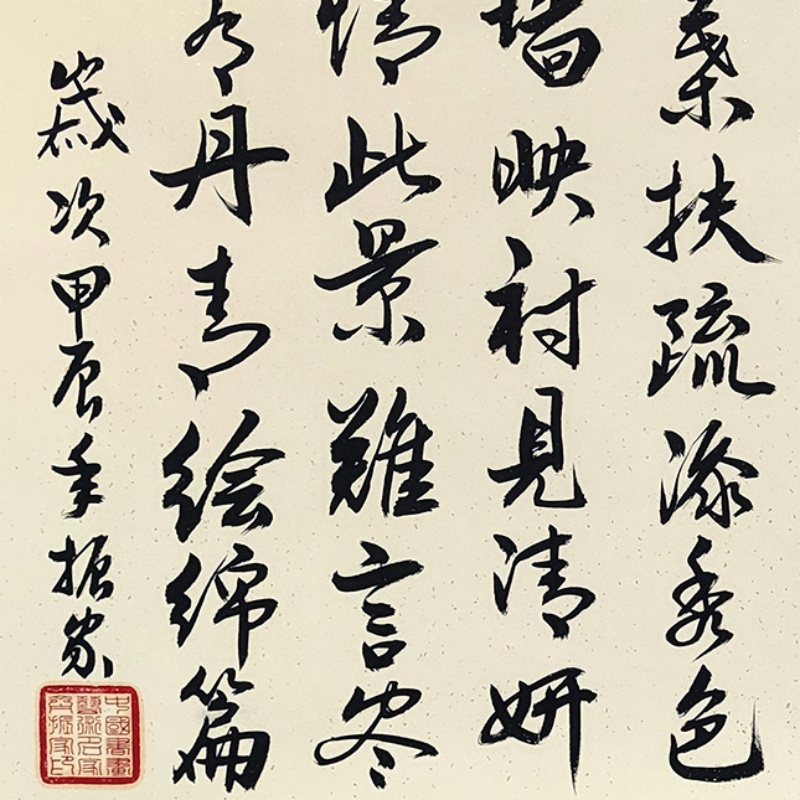 葉扶疏添秀色
墙映衬見清妍
情此景難言尽
丹青绘绵篇
歲次甲辰年振家
中國書畫
藝術名家
齊振家印